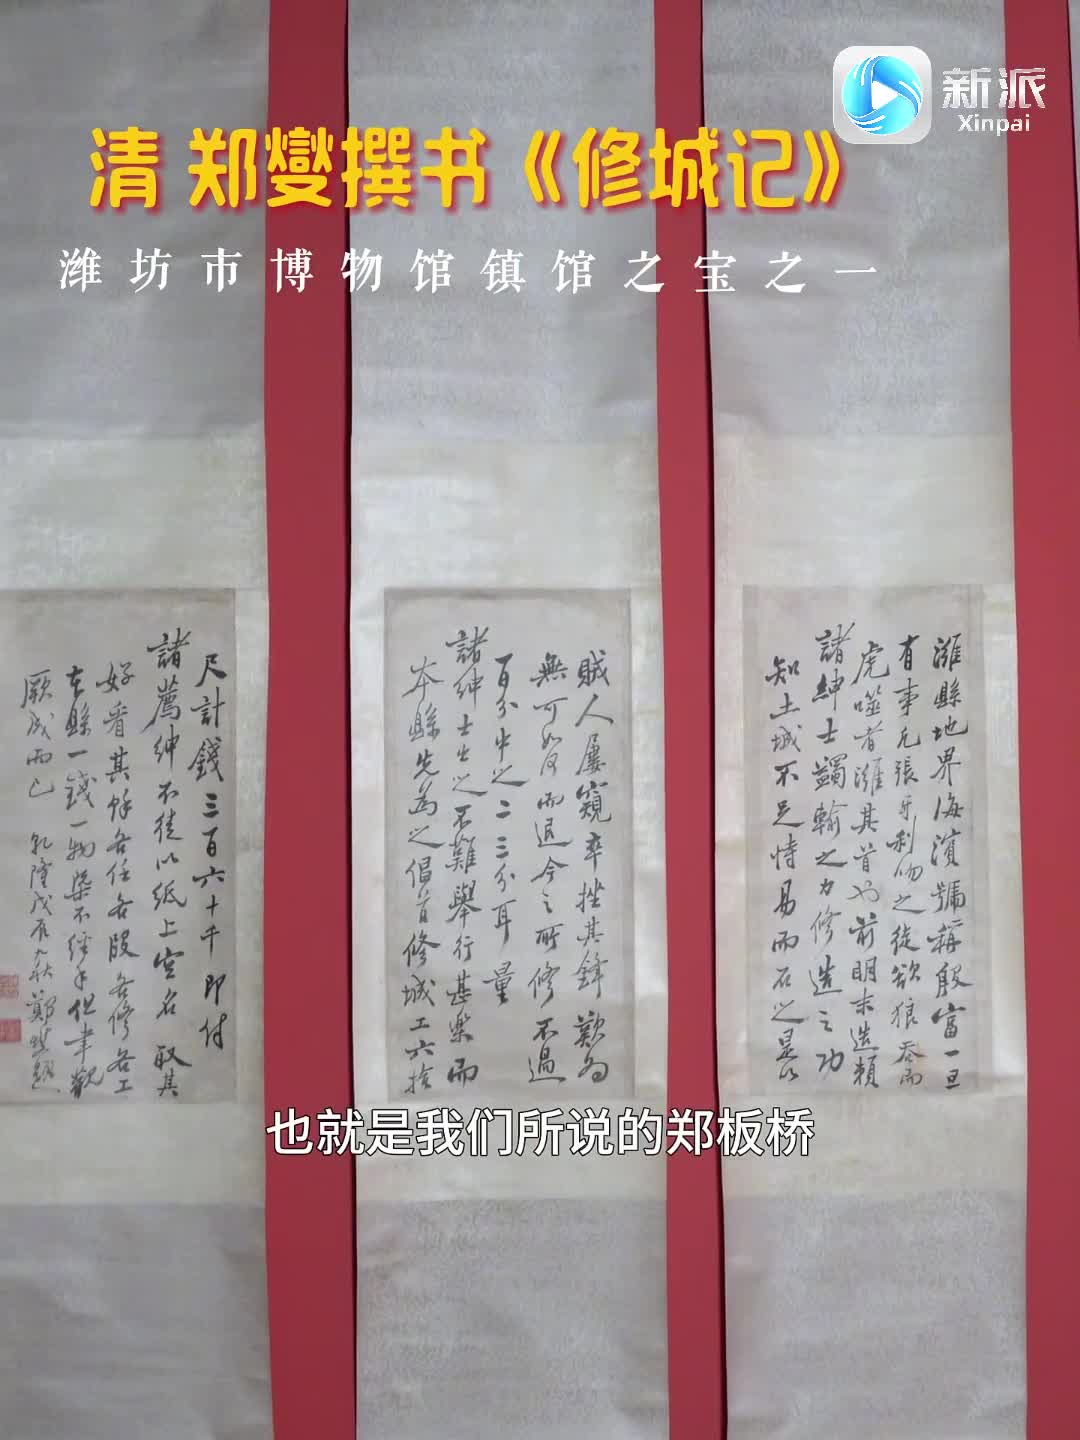 新派
Xinpai
清 郑燮撰书《修城记》
潍坊市博物馆镇馆之宝之一
濰縣地界海濱號稱殷富一旦
有事凡張牙利吻之徒欲狼吞而
虎噬者濰其首也前明末造賴
諸紳士蠲輸之力修造之功
知土城不足恃易而石之是以
賊人屢窺卒挫其鋒歎為
無可如何而退今之所修不過
百分中之二三分耳量
諸紳士出之不難舉行甚樂而
本縣先為之倡首修城工六拾
尺計錢三百六十千即付
諸薦紳不徒以紙上空名取其
好看其餘各任各段各修各工
本縣一錢一物槩不經手但聿觀
厥成而已 乾隆戊辰九秋鄭燮題
也就是我们所说的郑板桥